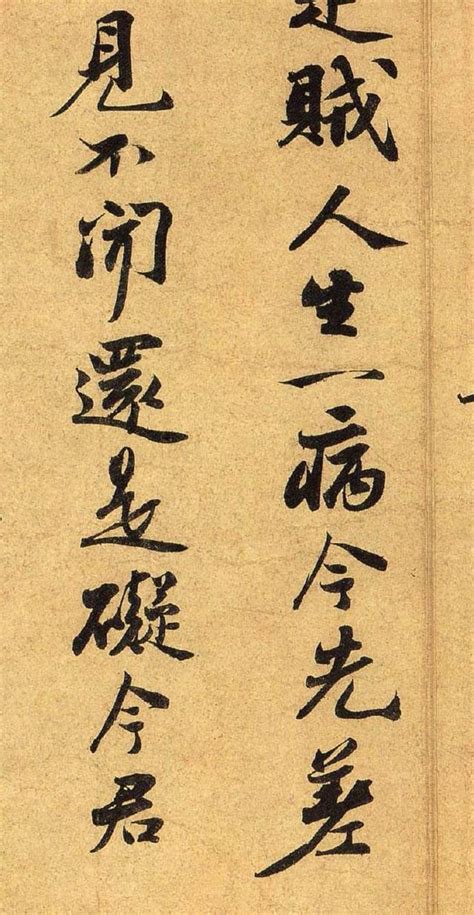 賊人生一病今先差
見不聞還是礙今君